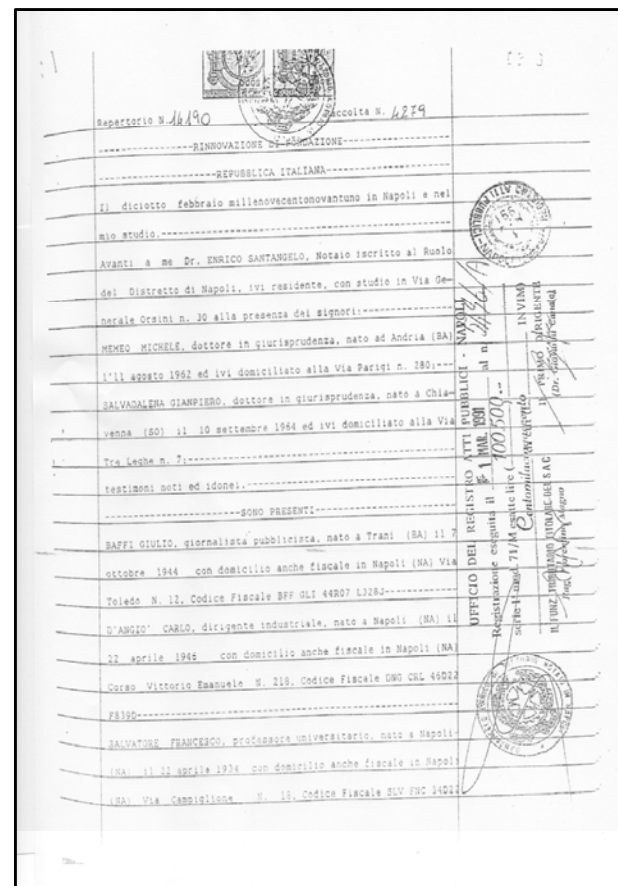 Repertorio N. 14190 Raccolta N. 4279
RINNOVAZIONE DI FONDAZIONE
REPUBBLICA ITALIANA
Il diciotto febbraio millenovecentonovantuno in Napoli e nel
mio studio.
Avanti a me Dr. ENRICO SANTANGELO, Notaio iscritto al Ruolo
del Distretto di Napoli, ivi residente, con studio in Via Ge-
nerale Orsini n. 30 alla presenza dei signori:
MEMEO MICHELE, dottore in giurisprudenza, nato ad Andria (BA)
l'11 agosto 1962 ed ivi domiciliato alla Via Parigi n. 280;
SALVADALENA GIANPIERO, dottore in giurisprudenza, nato a Chia-
venna (SO) il 10 settembre 1964 ed ivi domiciliato alla Via
Tre Leghe n. 7;
testimoni noti ed idonei.
SONO PRESENTI
BAFFI GIULIO, giornalista pubblicista, nato a Trani (BA) il 7
ottobre 1944 con domicilio anche fiscale in Napoli (NA) Via
Toledo N. 12, Codice Fiscale BFF GLI 44R07 L328J
D'ANGIO' CARLO, dirigente industriale, nato a Napoli (NA) il
22 aprile 1946 con domicilio anche fiscale in Napoli (NA)
Corso Vittorio Emanuele N. 218, Codice Fiscale DNG CRL 46D22
F839D
SALVATORE FRANCESCO, professore universitario, nato a Napoli
(NA) il 22 aprile 1934 con domicilio anche fiscale in Napoli
(NA) Via Campiglione N. 18, Codice Fiscale SLV FNC 34D22
UFFICIO DEL REGISTRO ATTI PUBBLICI - NAPOLI
Registrazione eseguita il 1 MAR. 1991 al n.
serie 1 mod. 71/M esatte lire ( 100500.-
INVIM)
IL FUNZ. TRIBUTARIO TITOLARE DEL SAC
IL PRIMO DIRIGENTE